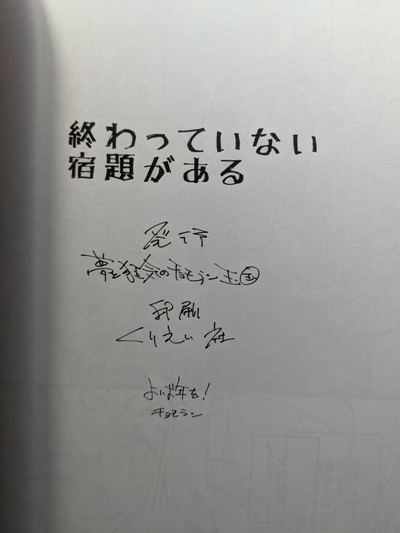 終わっていない
宿題がある
発行
夢と狂気のチョモラン王国
印刷
くりえい社
よいお年を!
チョモラン